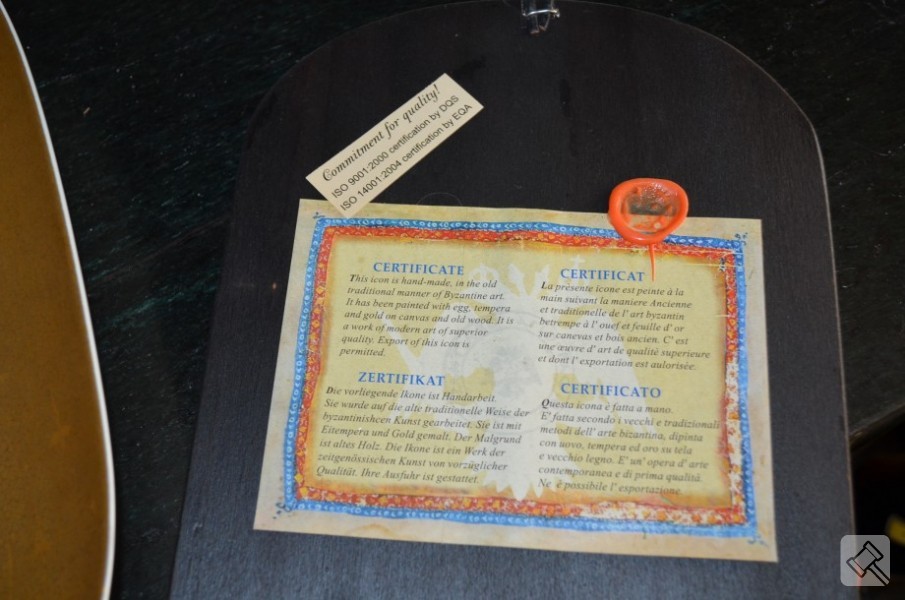 Commitment for quality!
ISO 9001:2000 certification by DQS
ISO 14001:2004 certification by EQA
CERTIFICATE
This icon is hand-made, in the old
traditional manner of Byzantine art.
It has been painted with egg, tempera
and gold on canvas and old wood. It is
a work of modern art of superior
quality. Export of this icon is
permitted.
CERTIFICAT
La présente icone est peinte à la
main suivant la maniere Ancienne
et traditionelle de l' art byzantin
betrempe à l' ouef et feuille d' or
sur canevas et bois ancien. C' est
une œuvre d' art de qualité superieure
et dont l' exportation est aulorisée.
ZERTIFIKAT
Die vorliegende Ikone ist Handarbeit.
Sie wurde auf die alte traditionelle Weise der
byzantinishcen Kunst gearbeitet. Sie ist mit
Eitempera und Gold gemalt. Der Malgrund
ist altes Holz. Die Ikone ist ein Werk der
zeitgenöxssichen Kunst von vorzüglicher
Qualität. Ihre Ausfuhr ist gestattet.
CERTIFICATO
Questa icona è fatta a mano.
E' fatta secondo i vecchi e tradizionali
metodi dell' arte bizantina, dipinta
con uovo, tempera ed oro su tela
e vecchio legno. E' un' opera d' arte
contemporanea e di prima qualità.
Ne è possibile l' esportazione.